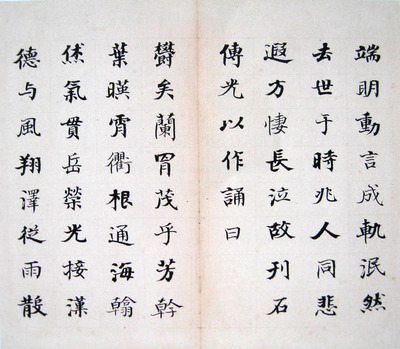 端明動言成軌泯然
去世于時兆人同悲
遐方悽長泣故刊石
傳光以作誦曰
欝矣蘭胃茂乎芳幹
葉暎霄衢根通海翰
烋氣貫岳榮光接漢
德与風翔澤從雨散